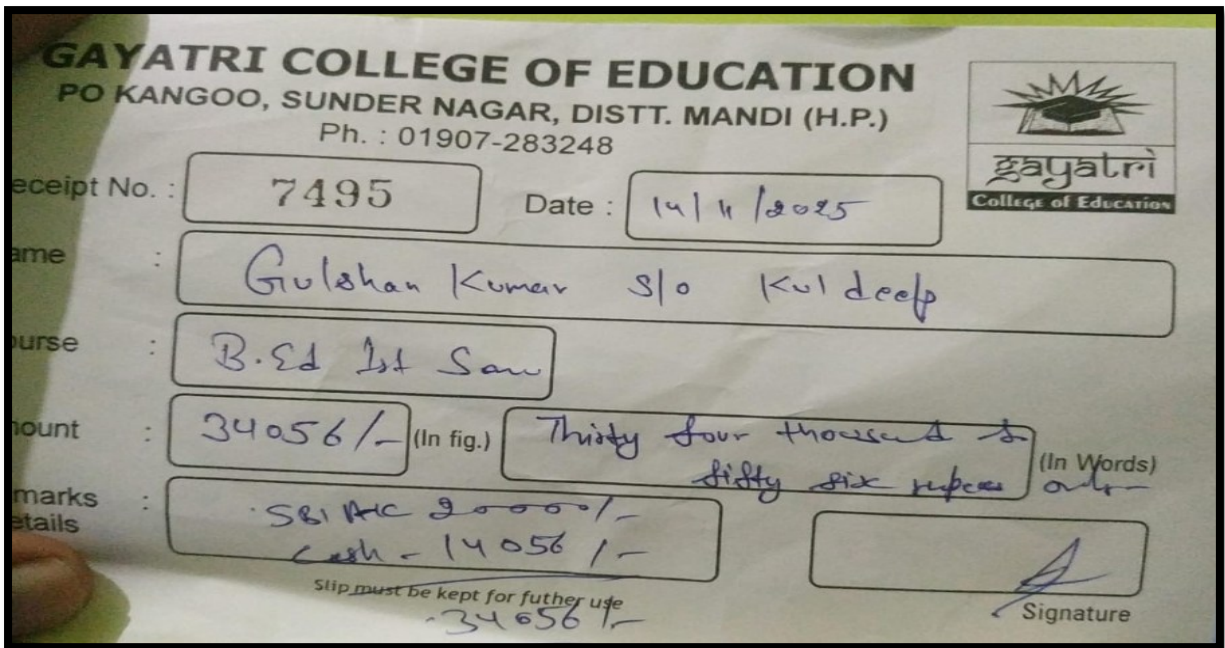 GAYATRI COLLEGE OF EDUCATION
PO KANGOO, SUNDER NAGAR, DISTT. MANDI (H.P.)
Ph. : 01907-283248
gayatri
College of Education
eceipt No. : 7495 Date : 14/11/2025
ame : Gulshan Kumar S/o Kuldeep
urse : B.Ed Ist Sem
ount : 34056/- (In fig.) Thirty four thousand &
fifty six rupees only (In Words)
marks : SBI A/C 20000/-
etails Cash - 14056/-
Slip must be kept for futher use
34056/-
Signature